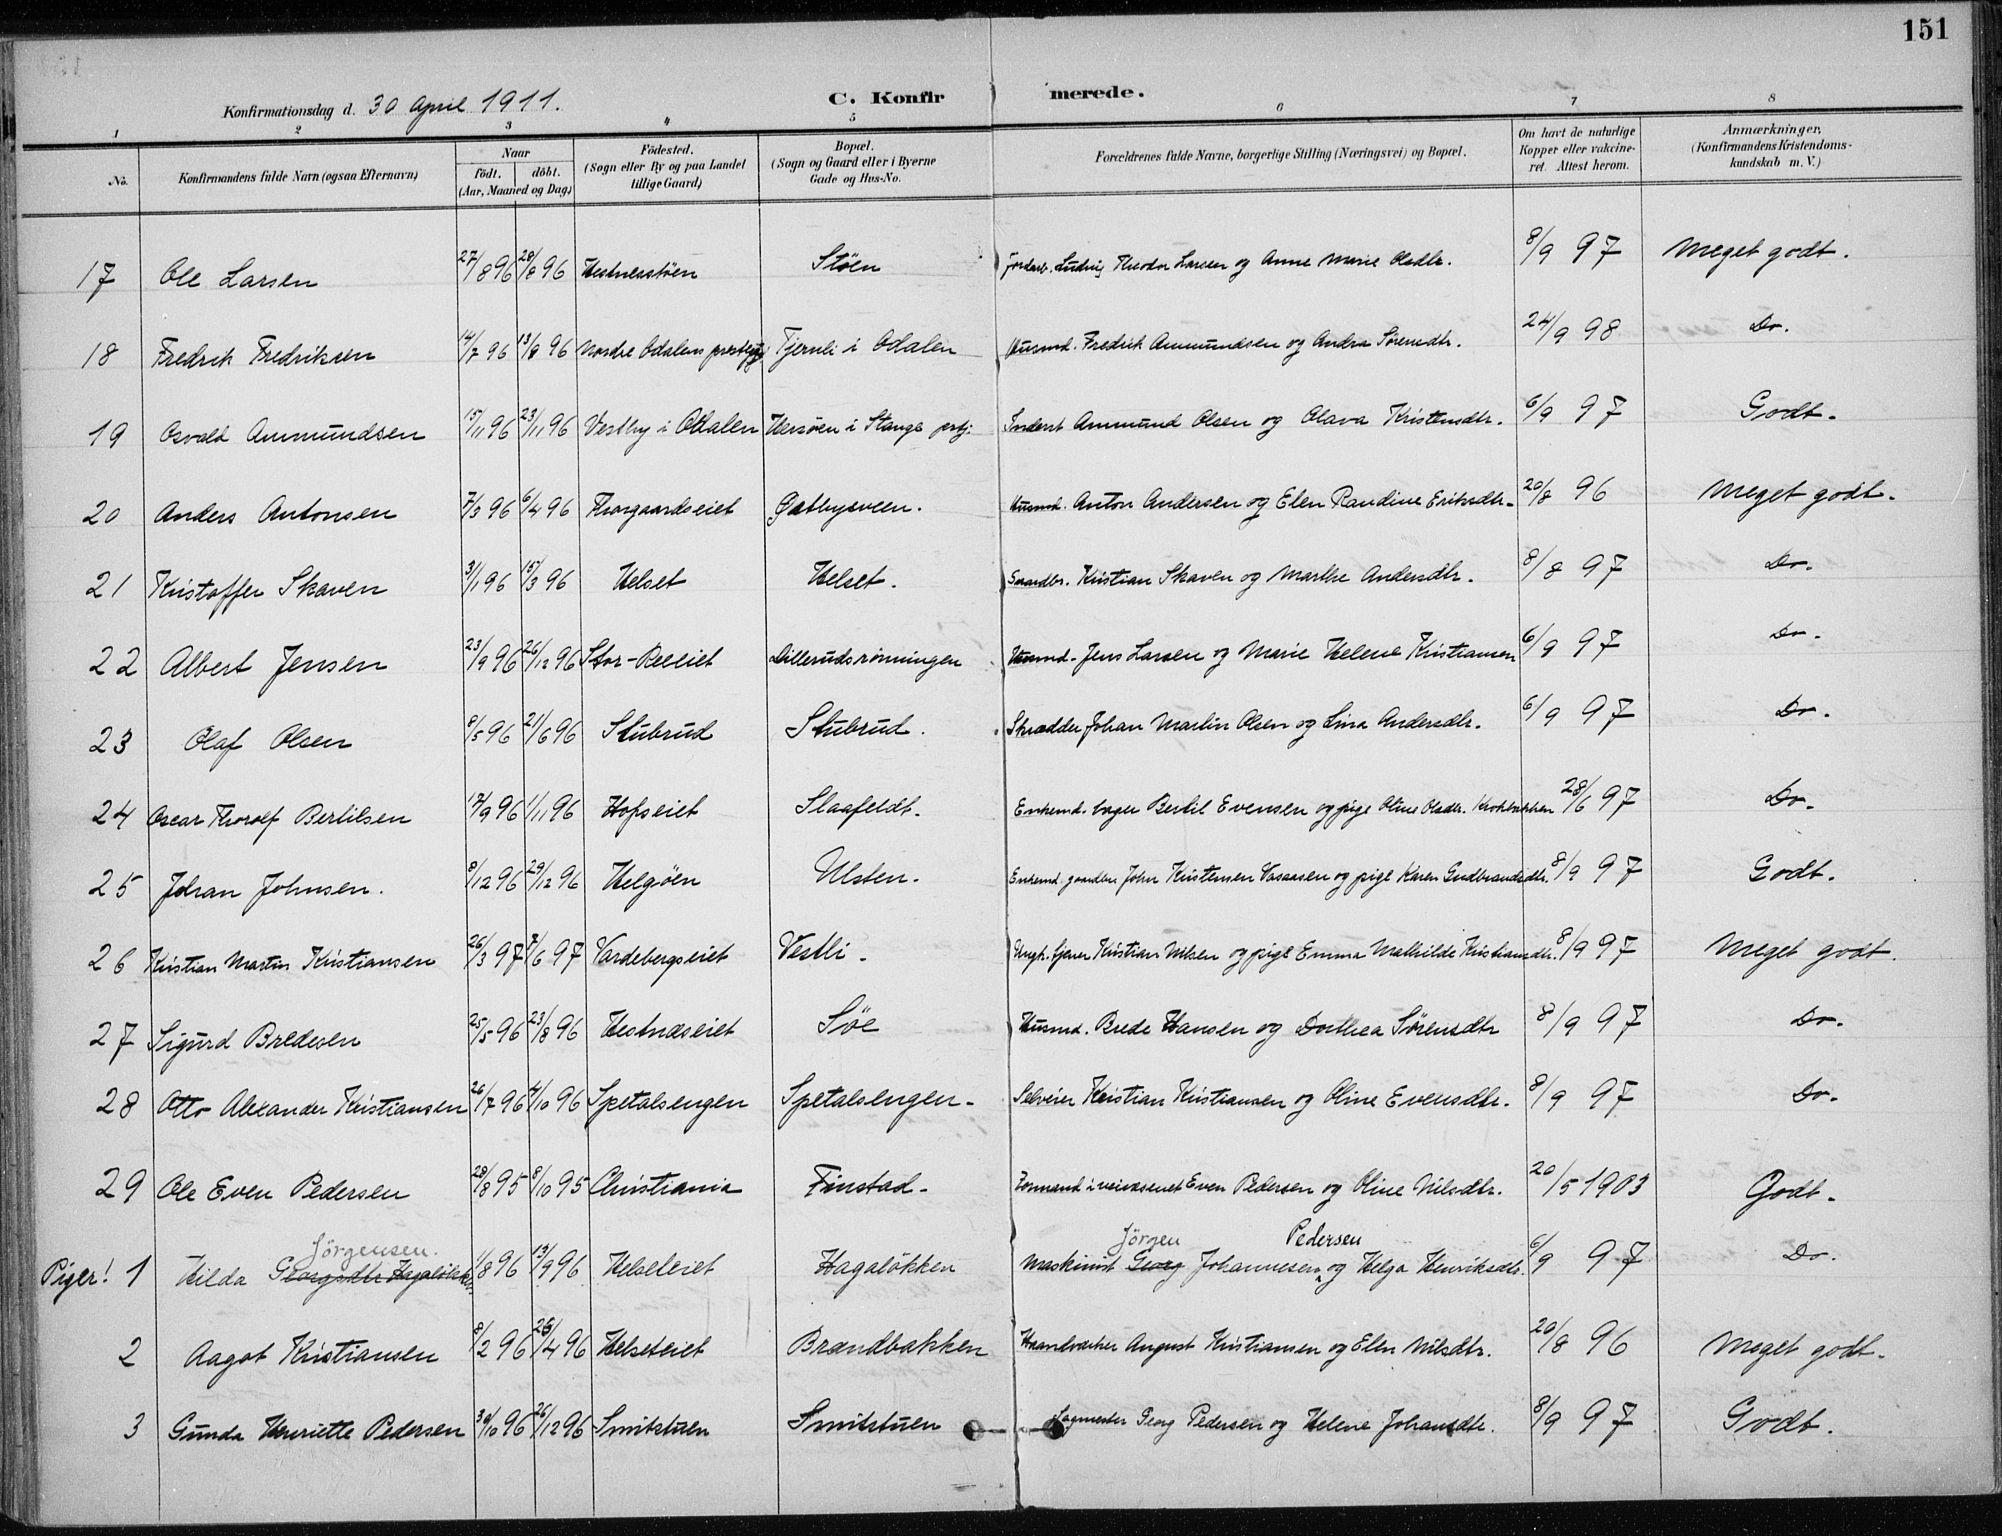 151
Konfirmationsdag d. 30 April 1911. C. Konfirmerede.
1 2 3 4 5 6 7 8
No. Konfirmandens fulde Navn (ogsaa Efternavn) Naar födt. döbt. (Aar, Maaned og Dag) Födested. (Sogn eller By og paa Landet tillige Gaard) Bopæl. (Sogn og Gaard eller i Byerne Gade og Hus-No. Forældrenes fulde Navne, borgerlige Stilling (Næringsvei) og Bopæl. Om havt de naturlige Kopper eller vakcineret. Attest herom. Anmærkninger, (Konfirmandens Kristendomskundskab m. V.)
17 Ole Larsen 27/8 96 28/8 96 Hestnesstöen Stöen Jordarb. Ludvig Theodor Larsen og Anne Marie Olsdtr. 8/9 97 Meget godt.
18 Fredrik Fredriksen 14/7 96 13/8 96 Nordre Odalens Tjernli i Odalen Husmd. Fredrik Ammundsen og Andra Sörensdtr. 24/9 98 Do.
19 Osvald Ammundsen 15/11 96 23/11 96 Vestby i Odalen Hersöen i Stange prstj: Inderst Ammund Olsen og Olava Kristensdtr. 6/9 97 Godt.
20 Anders Antonsen 7/3 96 6/4 96 Thorgaardseiet Gatbysveen. Husmd. Anton Andersen og Elen Randine Eriksdtr. 20/8 96 Meget godt.
21 Kristoffer Skaven 3/1 96 15/3 96 Helset Helset. Gaardbr. Kristian Skaven og Marthe Andersdtr. 8/8 97 Do.
22 Albert Jensen 23/9 96 26/12 96 Stor-Reeiet Dillerudsrönningen Husmd. Jens Larsen og Marie Helene Kristiansen 6/9 97 Do.
23 Olaf Olsen 8/5 96 21/6 96 Stubrud Stubrud. Skrædder Johan Martin Olsen og Lina Andersdtr. 6/9 97 Do.
24 Oscar Thorolf Bertilsen 17/9 96 1/11 96 Hofseiet Slaafeldt. Enkemd. bager Bertil Evensen og pige Oline Olsdtr. Krokbakken 28/6 97 Do.
25 Johan Johnsen. 8/12 96 29/12 96 Helgöen Ulsten. Enkemd. gaardbr. John Kristensen Vasaasen og pige Karen Gudbrandsdtr. 8/9 97 Godt.
26 Kristian Martin Kristiansen 26/3 97 7/6 97 Vardebergseiet Vestli. Ungk. tjener Kristian Nilsen og pige Emma Mathilde Kristiansdtr. 8/9 97 Meget godt.
27 Sigurd Bredesen 25/5 96 23/8 96 Hestnæseiet Söe Husmd. Brede Hansen og Dorthea Sörensdtr 8/9 97 Do.
28 Otto Alexander Kristiansen 26/7 96 4/10 96 Spetalsengen Spetalsengen. Selveier Kristian Kristiansen og Oline Evensdtr. 8/9 97 Do.
29 Ole Even Pedersen 28/8 95 8/10 95 Christiania Finstad. Formand i veivæsenet Even Pedersen og Oline Nilsdtr. 20/5 1903 Godt.
Jörgensen. Jörgen Pedersen
Piger! 1 Hilda Georgsdtr Hagalökken 1/8 96 13/9 96 Helseteiet Hagalökken Maskinist Georg Johannesen og Helga Henriksdtr. 6/9 97 Do.
2 Aagot Kristiansen 8/2 96 26/4 96 Helseteiet Brandbakken Haandværker August Kristiansen og Elen Nilsdtr. 20/8 96 Meget godt.
3 Gunda Henriette Pedersen 30/10 96 26/12 96 Smitstuen Smitstuen Sagmester Georg Pedersen og Helene Johansdtr. 8/9 97 Godt.